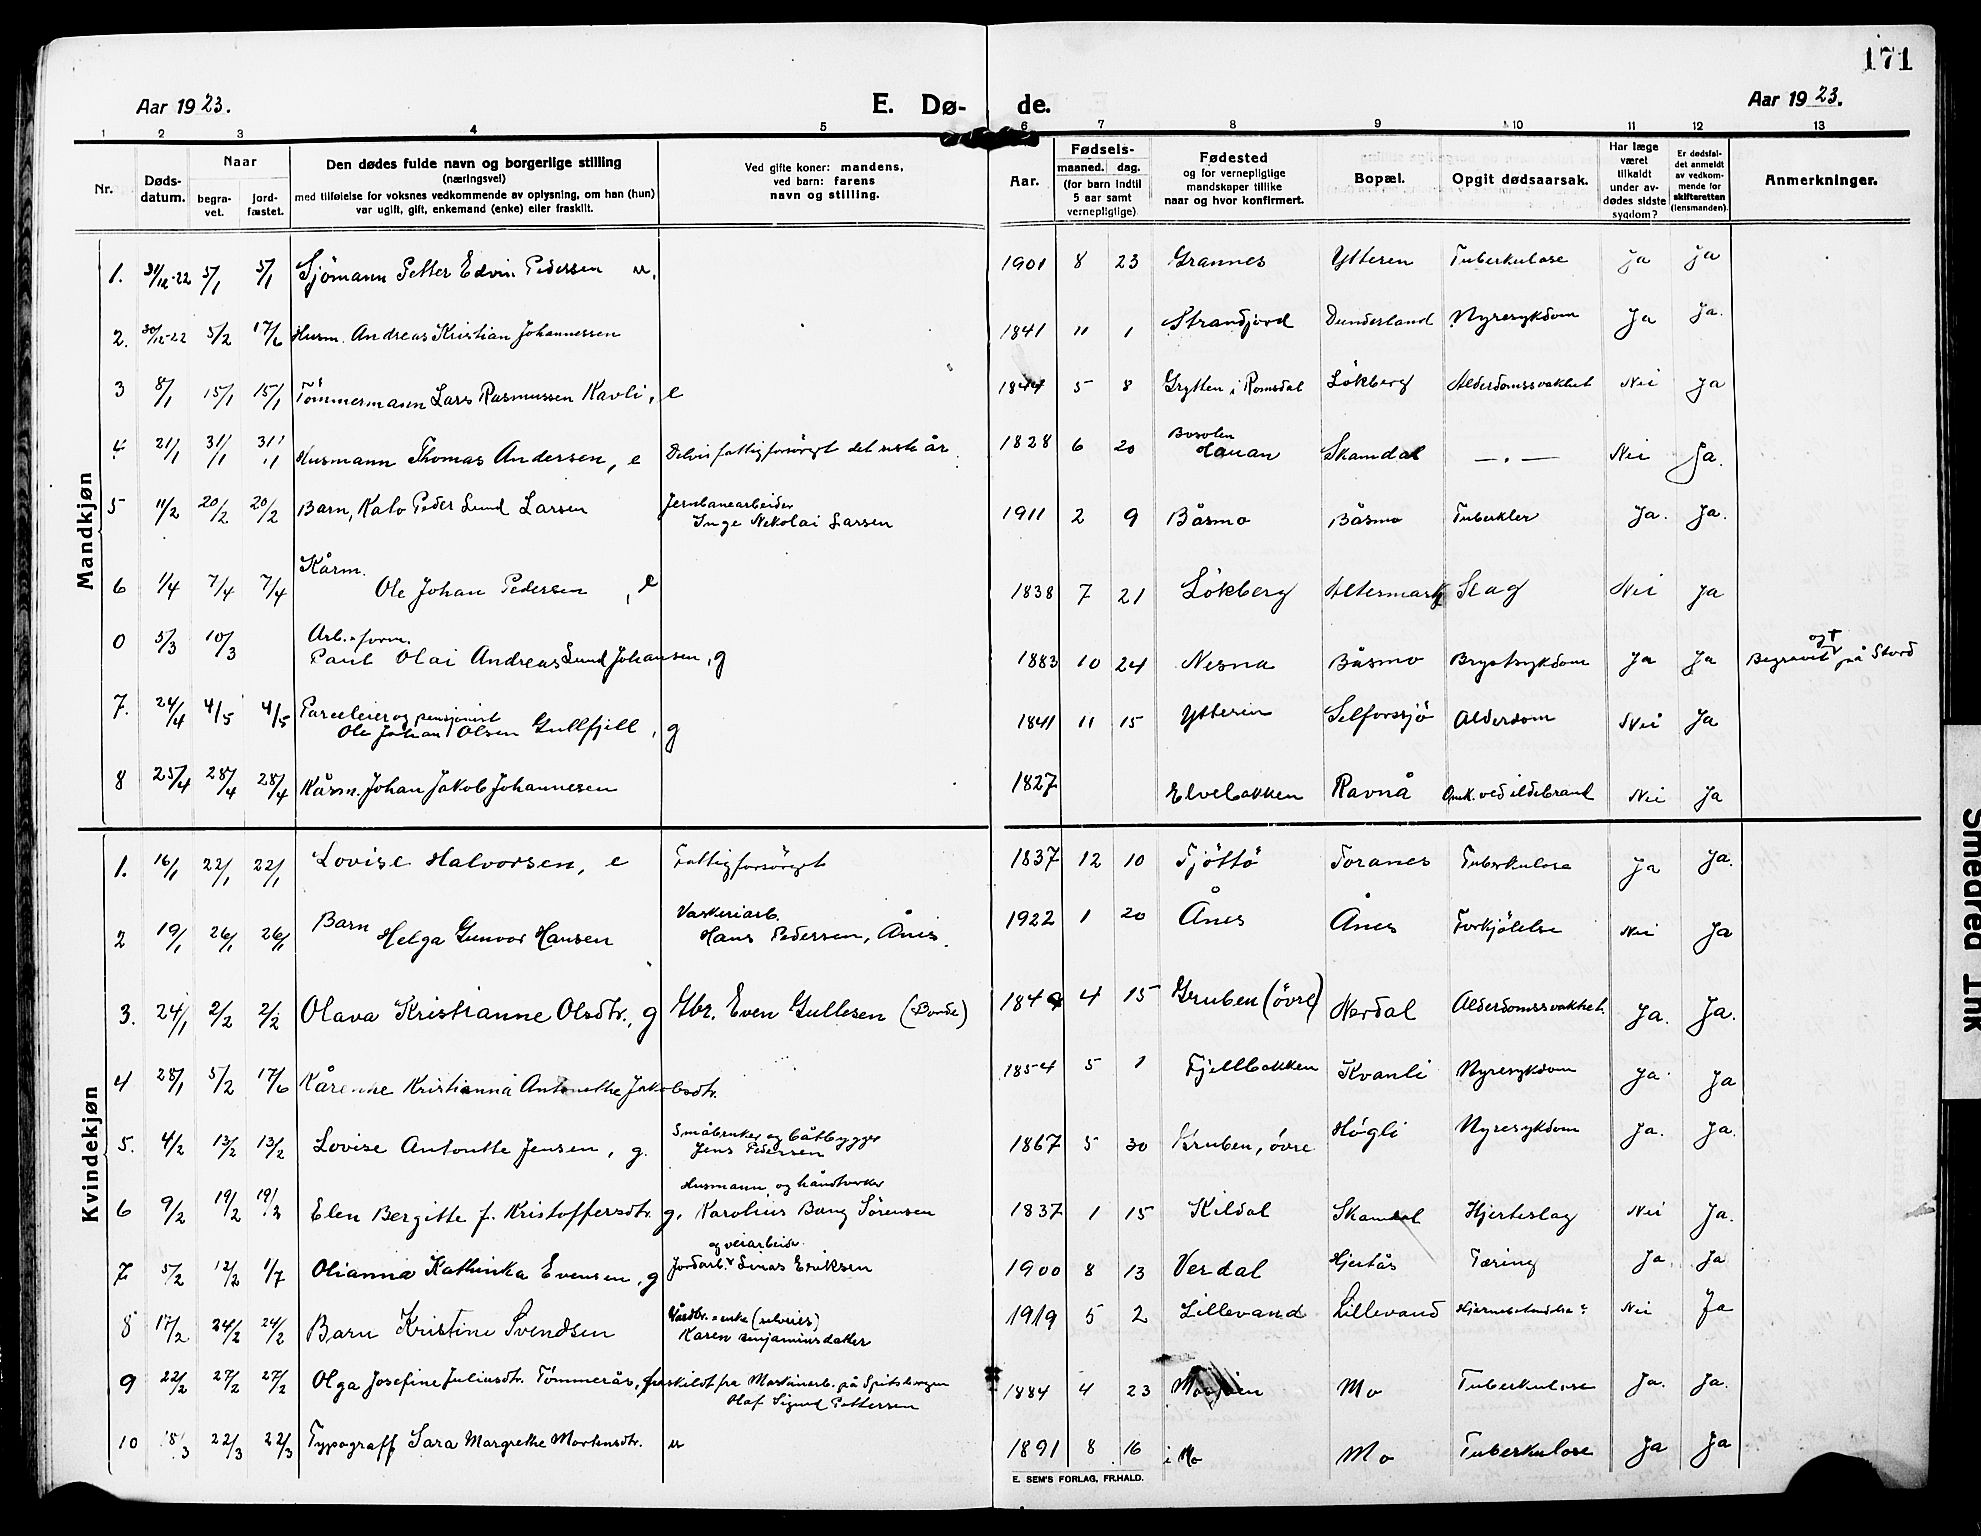 171
Aar 1923. E. Dø- de. Aar 1923.
1 2 3 4 5 6 7 8 9 10 11 12 13
Nr. Døds-datum. Naar begravet. jordfæstet. Den dødes fulde navn og borgerlige stilling (næringsvei) med tilføielse for voksnes vedkommende av oplysning, om han (hun) var ugift, gift, enkemand (enke) eller fraskilt. Ved gifte koner: mandens, ved barn: farens navn og stilling. Aar. Fødsels- maaned. dag. (for barn indtil 5 aar samt vernepligtige) Fødested og for vernepligtige mandskaper tillike naar og hvor konfirmert. Bopæl. Opgit dødsaarsak. Har læge været tilkaldt under avdødes sidste sygdom? Er dødsfaldet anmeldt av vedkommende for skifteretten (lensmanden). Anmerkninger.
Mandkjøn
1. 31/12-22 5/1 5/1 Sjömann Petter Edvin Pedersen u. 1901 8 23 Grannes Ytteren Tuberkulose Ja Ja
2. 30/12-22 5/2 17/6 Husm. Andreas Kristian Johannessen 1841 11 1 Strandjord Dunderland Nyresykdom Ja Ja.
3 8/1 15/1 15/1 Tömmermann Lars Rasmussen Kavli, e 1844 5 8 Grytten i Romsdal Lökberg Alderdomssvakhet Nei Ja
4 21/1 31/1 31/1 Husmann Thomas Andersen, e Delvis fattigforsörgt det siste år. 1828 6 20 Hauan Skamdal — . — Nei Ja.
5 11/2 20/2 20/2 Barn, Kato Peder Lund Larsen Jernbanearbeider Inge Nikolai Larsen 1911 2 9 Båsmo Båsmo Tuberkler Ja. Ja.
6 1/4 7/4 7/4 Kårm. Ole Johan Pedersen, e 1838 7 21 Lökberg Altermark Slag Nei Ja
0 5/3 10/3 Arb.form. Paul Olai Andreas Lund Johansen, g 1883 10 24 Nesna Båsmo Brystsykdom Ja Ja Begravet og † på Stord
7. 24/4 4/5 4/5 Parseleier og pensjonist Ole Johan Olsen Gullfjell, g 1841 11 15 Ytteren Selforssjö Alderdom Nei Ja
8 25/4 28/4 28/4 Kårm. Johan Jakob Johannesen 1827 Elvebakken Ravnå Omk. ved ildebrand Nei Ja
Kvindekjøn
1. 16/1 22/1 22/1 Lovise Halvorsen, e Fattigforsörget 1837 12 10 Tjöttö Toranes Tuberkulose Ja Ja.
2 19/1 26/1 26/1 Barn Helga Gunvor Hansen Vaskeriarb. Hans Pedersen, Ånes. 1922 1 20 Ånes Ånes Forkjölelse Nei Ja
3. 24/1 2/2 2/2 Olava Kristianne Olsdtr., g Gbr. Even Gullesen (Bonde) 1849 4 15 Gruben (övre) Nerdal Alderdomssvakhet. Ja. Ja.
4 28/1 5/2 17/6 Kårenke Kristianna Antonethe Jakobsdtr. 1854 5 1 Fjellbakken Kvanli Nyresykdom Ja. Ja
5. 4/2 13/2 13/2 Lovise Antonette Jensen, g. Småbruker og båtbygger Jens Pedersen 1867 5 30 Gruben, övre Högli Nyresykdom Ja. Ja.
6 9/2 19/2 19/2 Elen Bergitte f. Kristoffersdtr. g. Husmann og håndverker Karolius Bang Sörensen 1837 1 15 Kildal Skamdal Hjerteslag Nei Ja.
7. 5/2 12/2 1/7 Olianna Kathinka Evensen, g Jordarb. og veiarbeider Linas Eriksen 1900 8 13 Verdal Hjertås Tæring Ja. Ja
8 17/2 24/2 24/2 Barn Kristine Svendsen Gårdbr.enke (selveier) Karen Benjaminsdatter 1919 5 2 Lillevand Lillevand Hjernebetendelse? Nei Ja
9 22/2 27/2 27/2 Olga Josefine Juliusdtr. Tömmerås, fraskildt fra Maskinarb. på Spitsbergen Olaf Sigurd Pettersen 1884 4 23 Mosjöen Mo Tuberkulose Ja. Ja.
10 18/3 22/3 22/3 Typograff Sara Margrethe Mortensdtr. u 1891 8 16 i Mo Mo Tuberkulose Ja Ja
E. SEM'S FORLAG, FR.HALD.
Smeared Ink